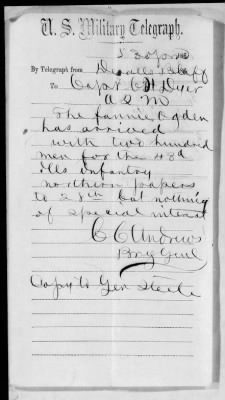 U. S. Military Telegraph.
5.30 pm
By Telegraph from Devalls Bluff
To Capt C H Dyer
A A G
The fannie Ogden
has arrived
with two hundred
men for the 43d
Ills Infantry
northern papers
to 28th but nothing
of special interest
C C Andrews
Brig Genl
Copy to Gen Steele